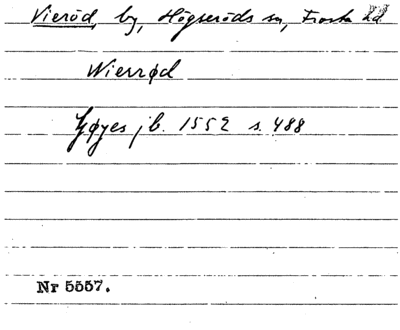 Vieröd, by, Högseröds sn, Frosta hd
Wierrød
Gøyes jb. 1552 s. 488
Nr 5557.